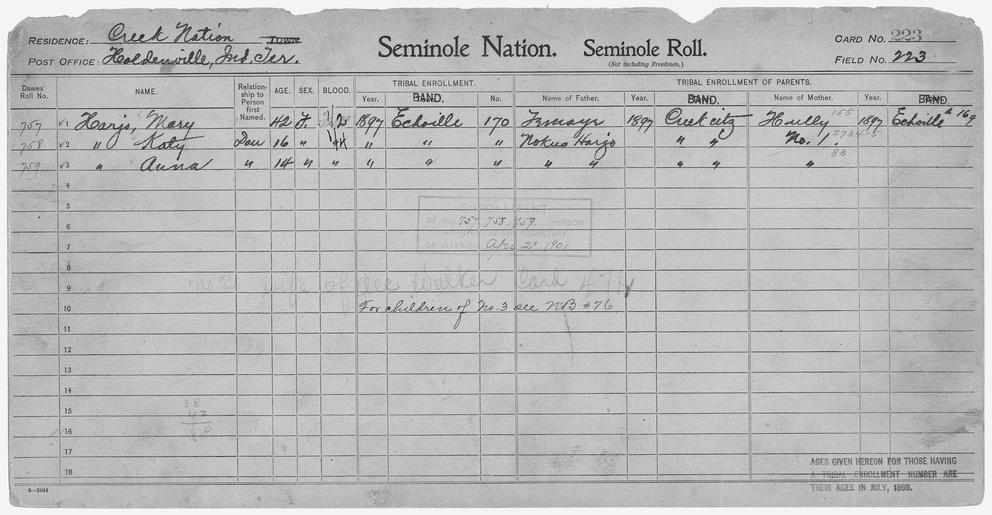 RESIDENCE: Creek Nation Town
Seminole Nation. Seminole Roll.
CARD NO. 223
(Not including Freedmen.)
POST OFFICE: Holdenville, Ind. Ter.
FIELD NO. 223
Dawes' Roll No. NAME. Relationship to Person first Named. AGE. SEX. BLOOD. TRIBAL ENROLLMENT. TRIBAL ENROLLMENT OF PARENTS.
Year. BAND. No. Name of Father. Year. BAND. Name of Mother. Year. BAND.
757 √1 Harjo, Mary 42 F. 1897 Echoille 170 1897 Creek citz Hully 155 1897 Echoille # 169
758 √2 " Katy Dau 16 " " " " Nokus Harjo " " No. 1.
759 √3 " Anna " 14 " " " " " " " " "
88
4
5
6
7
8
9
10
11
12
13
14
15
16
17
18
ENROLLMENT
OF 757, 758, 759 HEREON
OF INTERIOR Apr 2 1901
No 2 wife of Walker Card 474
For children of No. 3 see NB #76
38
42
80
AGES GIVEN HEREON FOR THOSE HAVING
A TRIBAL ENROLLMENT NUMBER ARE
THEIR AGES IN JULY, 1898.
6—1044